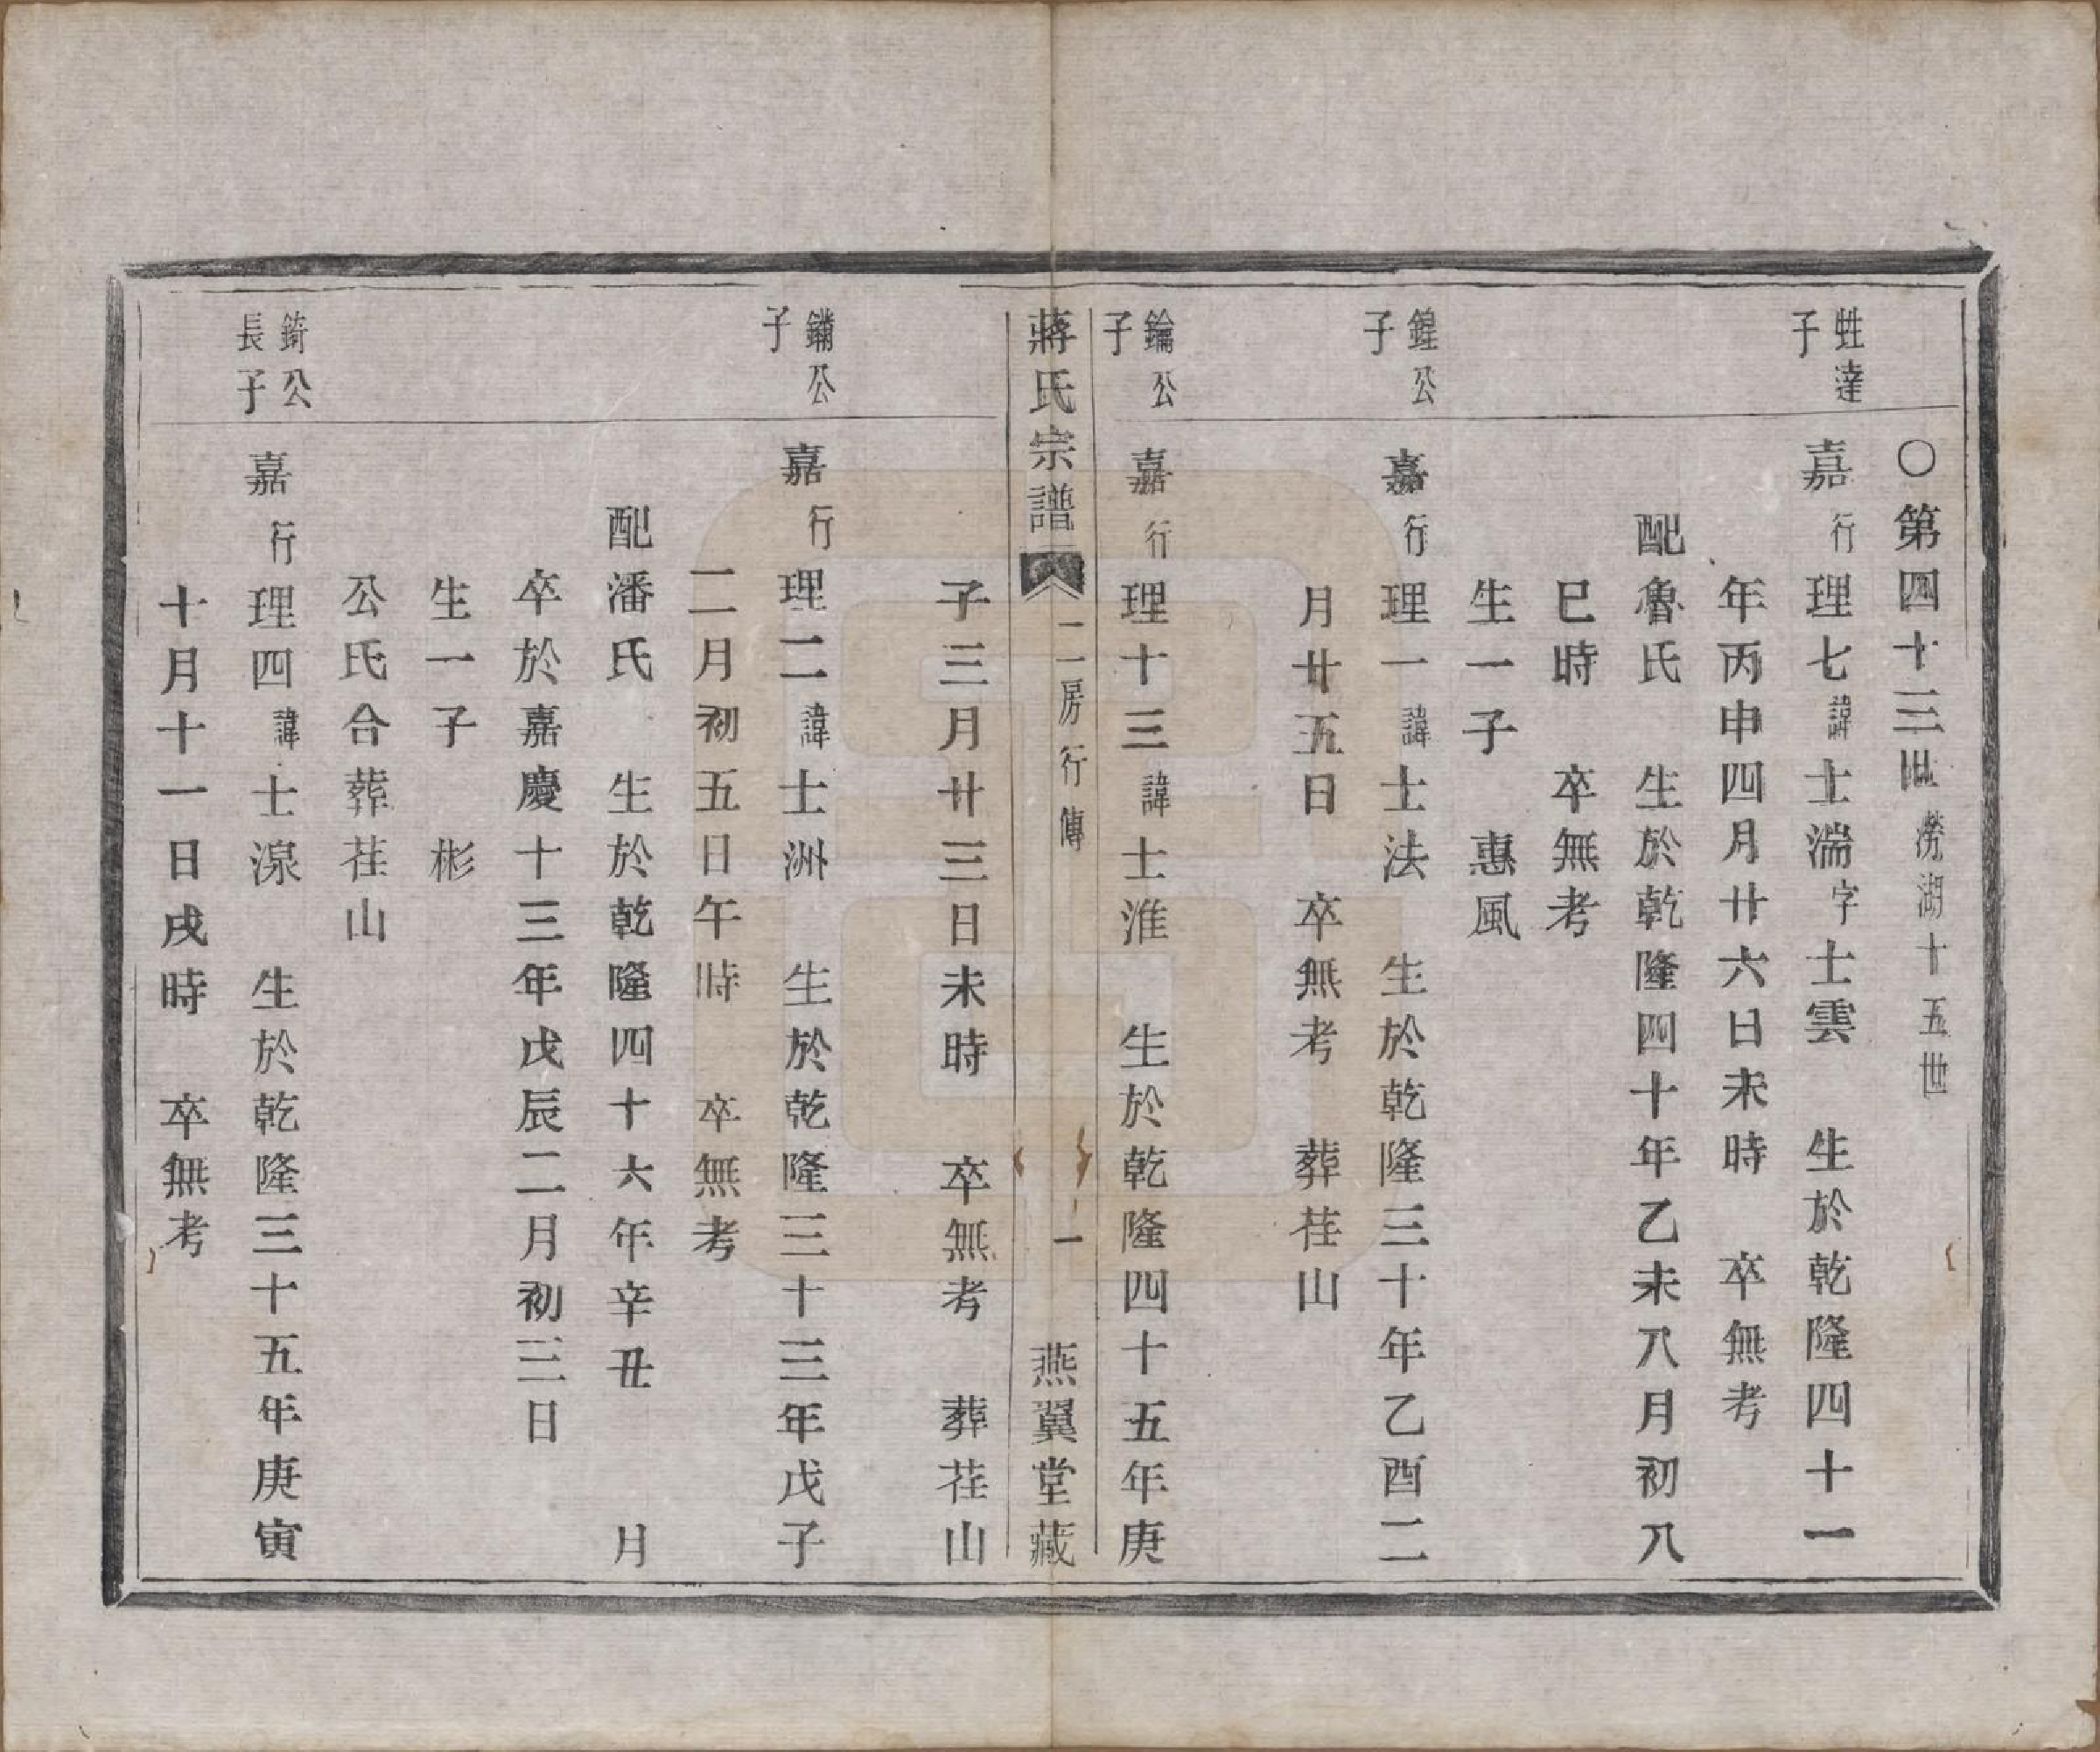 ○第四十三世 澇湖十五世
甡達子
嘉行理七諱士湍字士雲 生於乾隆四十一
年丙申四月廿六日未時 卒無考
配魯氏 生於乾隆四十年乙未八月初八
巳時 卒無考
生一子 惠風
鍠公子
嘉行理一諱士法 生於乾隆三十年乙酉二
月廿五日 卒無考 葬荏山
錀公子
嘉行理十三諱士淮 生於乾隆四十五年庚
蔣氏宗譜 二房行傳 一 燕翼堂藏
子三月廿三日未時 卒無考 葬荏山
鏽公子
嘉行理二諱士洲 生於乾隆三十三年戊子
二月初五日午時 卒無考
配潘氏 生於乾隆四十六年辛丑 月
卒於嘉慶十三年戊辰二月初三日
生一子 彬
公氏合葬荏山
錡公長子
嘉行理四諱士湶 生於乾隆三十五年庚寅
十月十一日戌時 卒無考